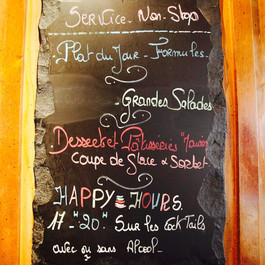 Service - Non-Stop
- Plat du Jour - Formules -
- Grandes Salades
Dessert et Pâtisseries "Maison"
Coupe de Glace & Sorbet
HAPPY HOURS
17-"20" Sur les Cocktails
avec ou sans Alcool -